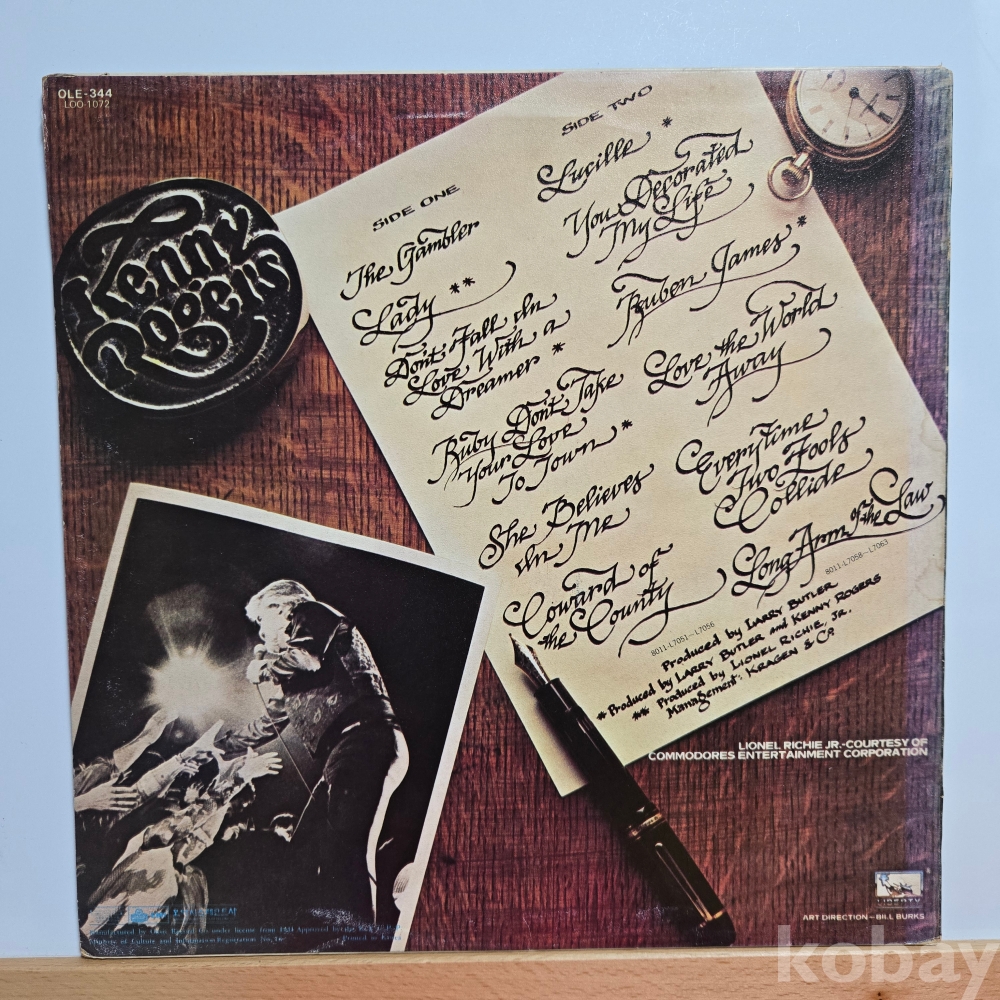 OLE-344
LOO-1072
Kenny
Rogers
SIDE ONE
The Gambler
Lady **
Don't Fall In
Love With a
Dreamer *
Ruby Don't Take
Your Love
To Town *
She Believes
In Me
Coward of
the County
8011-L7051~L7056
SIDE TWO
Lucille *
You Decorated
My Life
Ruben James *
Love the World
Away
Everytime
Two Fools
Collide
Long Arm of the Law
8011-L7058~L7063
Produced by LARRY BUTLER
* Produced by LARRY BUTLER and KENNY ROGERS
** Produced by LIONEL RICHIE, JR.
Management: KRAGEN & CO.
LIONEL RICHIE JR.-COURTESY OF
COMMODORES ENTERTAINMENT CORPORATION
LIBERTY
ART DIRECTION-BILL BURKS
Manufactured by Oasis Record Co. under license from
Bureau of Culture and Information Registration
Printed in Korea
kobay